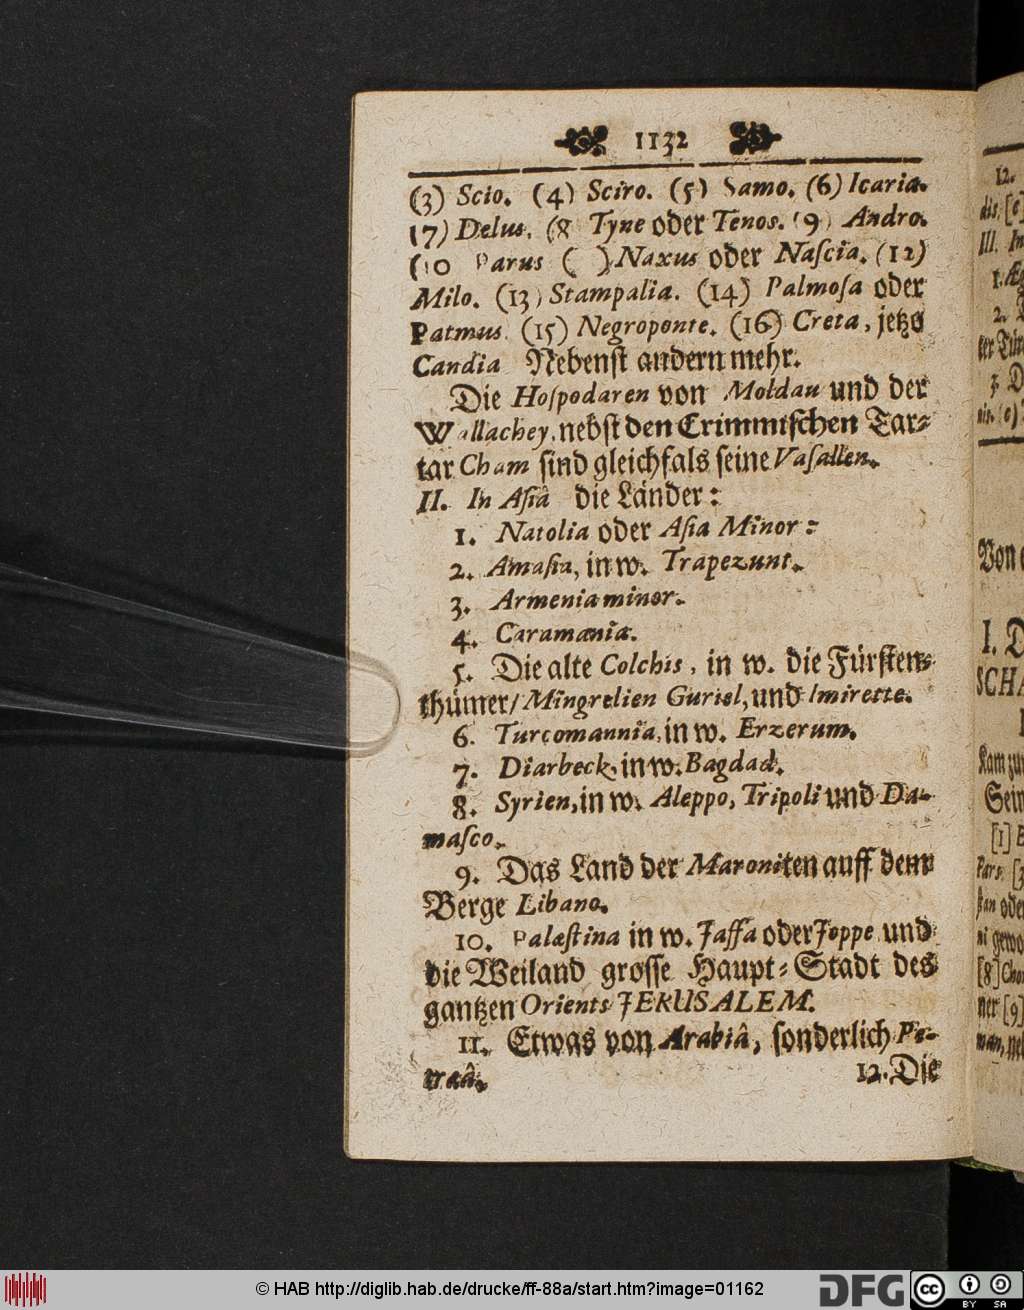 1132
(3) Scio. (4) Sciro. (5) Samo. (6) Icaria.
(7) Delus. (8 Tyne oder Tenos. (9) Andro.
(10 Parus ( ) Naxus oder Naſcia. (12)
Milo. (13) Stampalia. (14) Palmoſa oder
Patmus. (15) Negroponte. (16) Creta, jetzo
Candia Nebenſt andern mehr.
Die Hoſpodaren von Moldau und der
Wallachey, nebſt den Crimmiſchen Tar⸗
tar Cham ſind gleichfals ſeine Vaſallen.
II. In Aſiâ die Länder:
1. Natolia oder Aſia Minor:
2. Amaſia, in w. Trapezunt.
3. Armenia minor.
4. Caramania.
5. Die alte Colchis, in w. die Fürſten⸗
thümer/ Mingrelien Guriel, und Imirette.
6. Turcomannia, in w. Erzerum.
7. Diarbeck, in w. Bagdad.
8. Syrien, in w. Aleppo, Tripoli und Da-
maſco.
9. Das Land der Maroniten auff dem
Berge Libano.
10. Palæſtina in w. Jaffa oder Joppe und
die Weiland groſſe Haupt⸗Stadt des
gantzen Orients JERUSALEM.
11. Etwas von Arabiâ, ſonderlich Pe-
traâ.
12. Die
12.
dis. [6]
III. In
1. Æg
2.
ter Tür
3. D
Von
I. D
SCHA
Kam zu
Sein
[1]
Pars. [3
ſtan oder
ni gewo
[8] Cho
ner [9]
wan, ne
© HAB http://diglib.hab.de/drucke/ff-88a/start.htm?image=01162
DFG
cc
BY SA